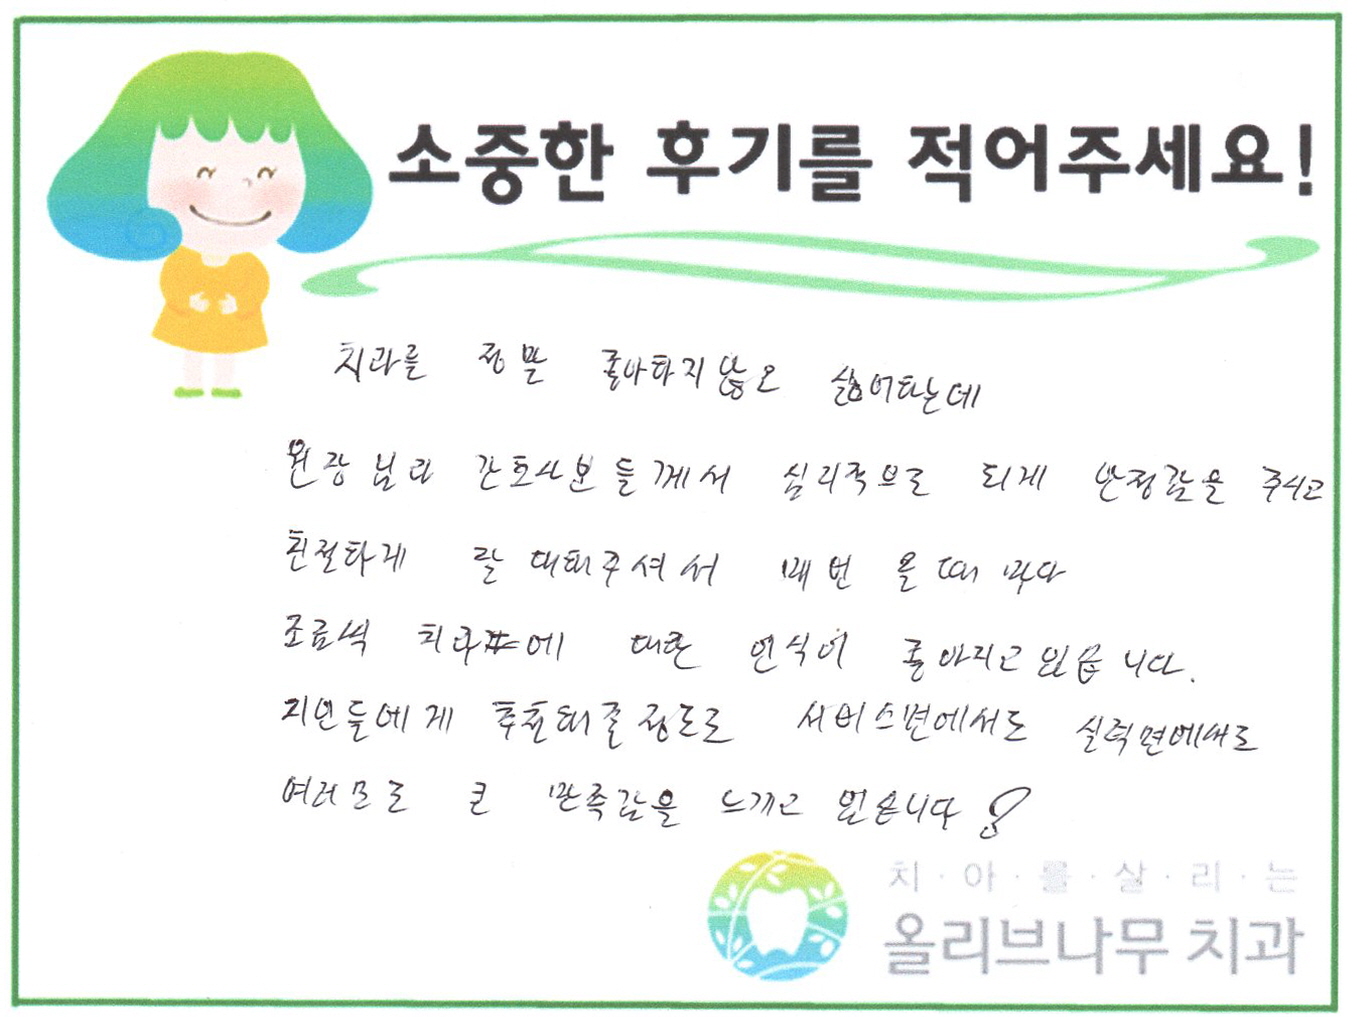 소중한 후기를 적어주세요!
치과를 정말 좋아하지않고 싫어하는데
원장님과 간호사분들께서 심리적으로 되게 안정감을 주시고
친절하게 잘 대해주셔서 매번 올때마다
조금씩 치과에 대한 인식이 좋아지고있습니다.
지인들에게 추천해줄정도로 서비스면에서도 실력면에서도
여러모로 큰 만족감을 느끼고 있습니다
치·아·를·살·리·는
올리브나무 치과